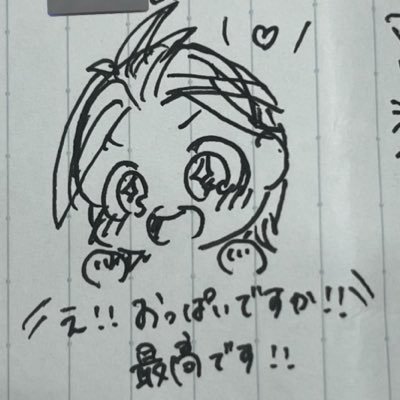 え!! おっぱいですか!!
最高です!!